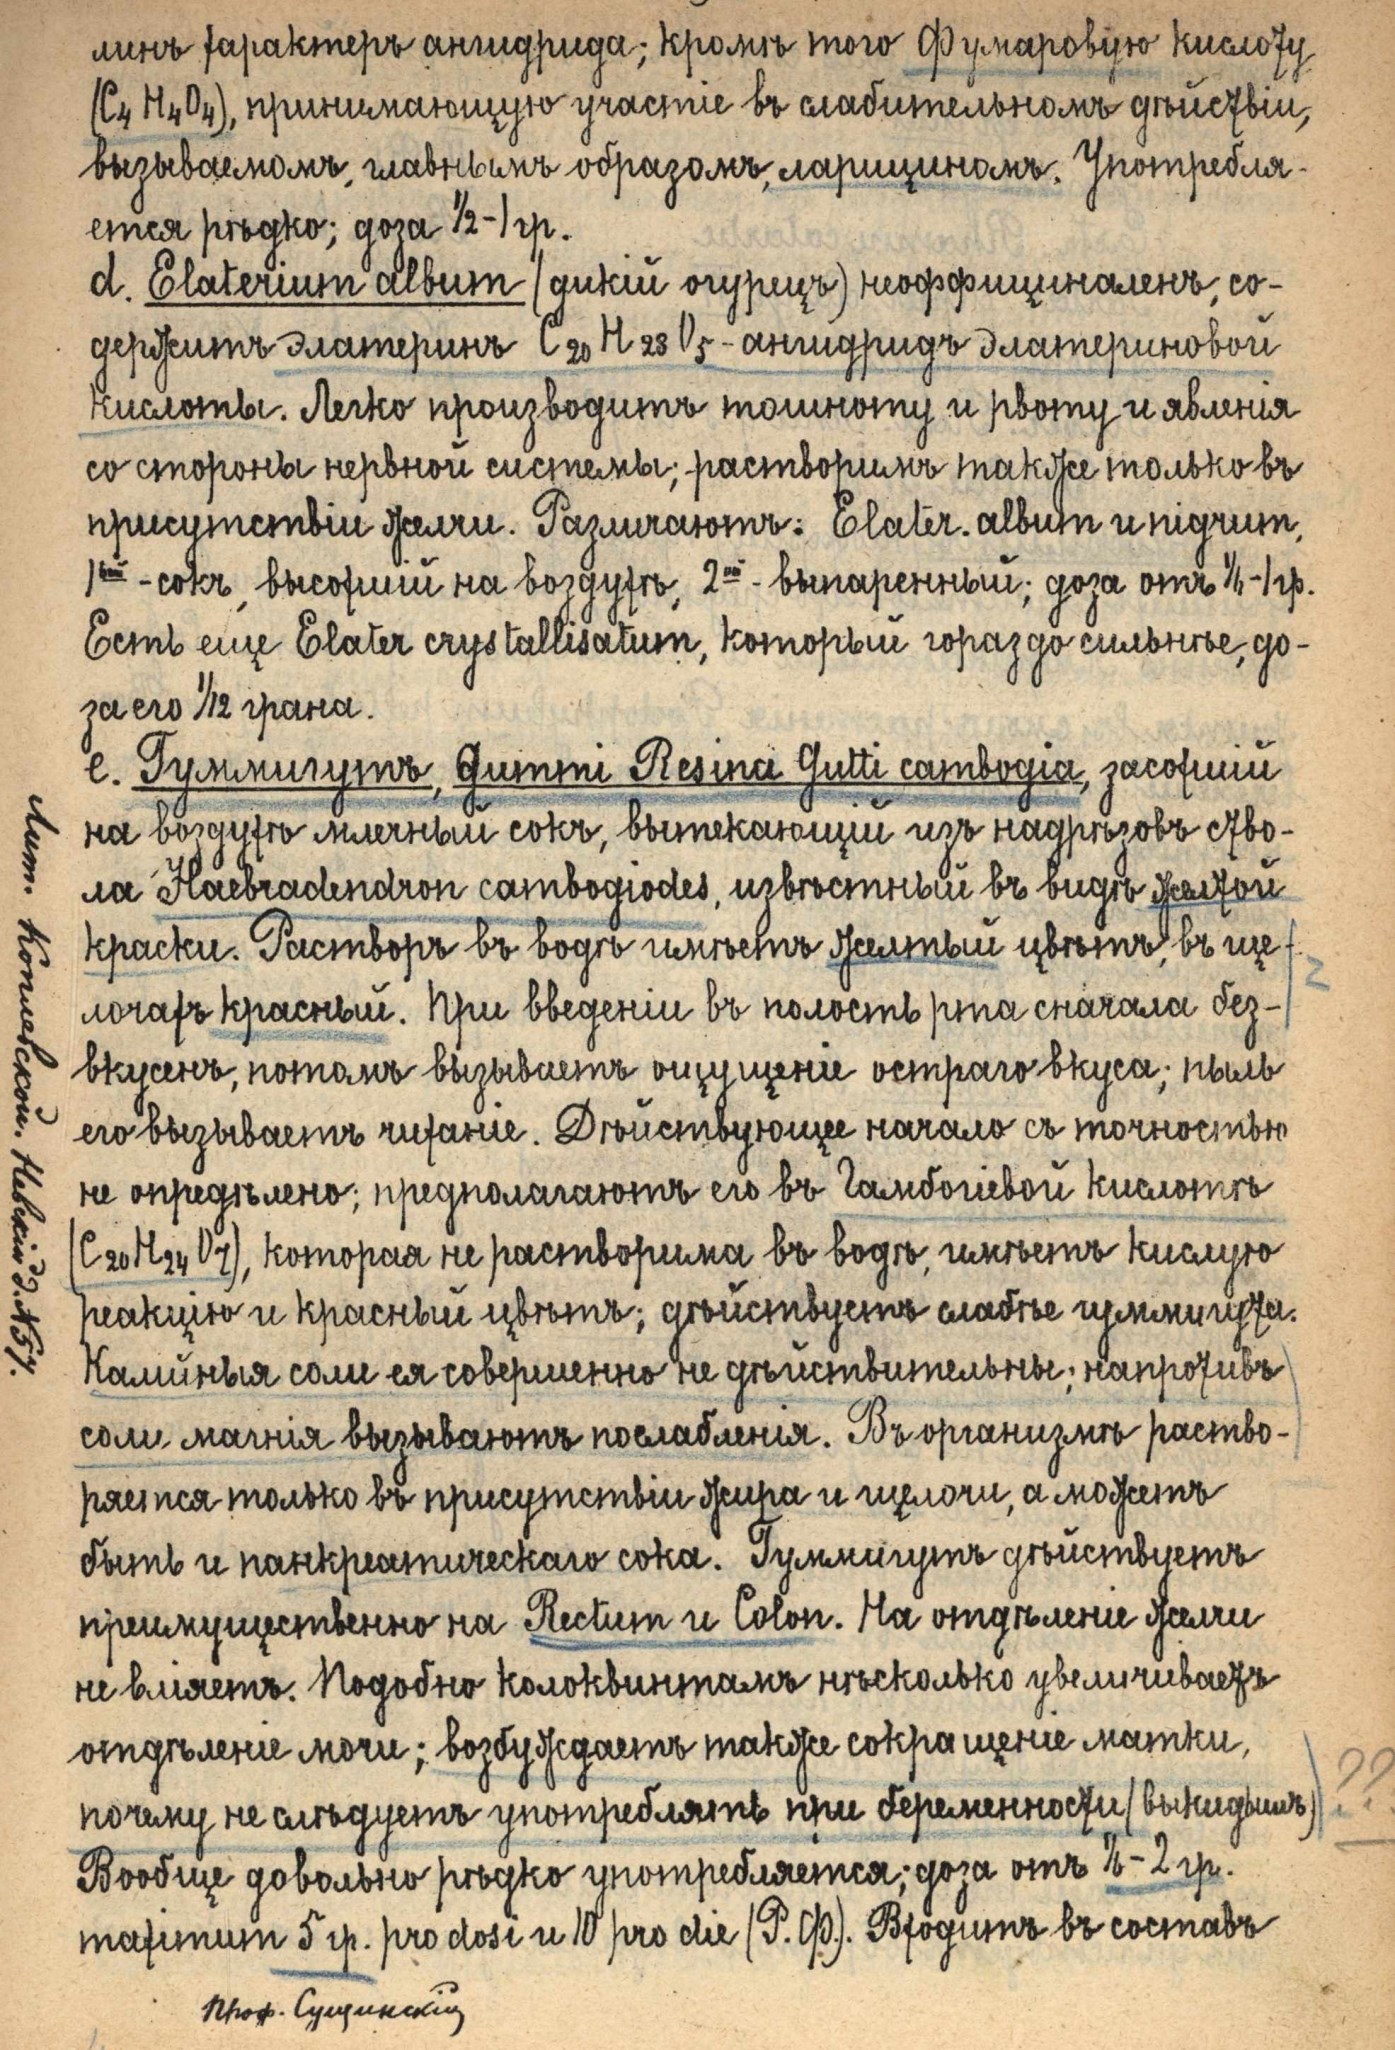 линъ характеръ ангидрида; кромѣ того Фумаровую кислоту
(C4 H4O4), принимающую участіе въ слабительномъ дѣйствіи,
вызываемомъ, главнымъ образомъ, ларициномъ. Употребля-
ется рѣдко; доза 1/2-1 гр.
d. Elaterium album (дикій огурецъ) неоффициналенъ, со-
держитъ элатеринъ C20 H28 O5 - ангидридъ элатериновой
кислоты. Легко производитъ тошноту и рвоту и явленія
со стороны нервной системы; растворимъ также только въ
присутствіи желчи. Различаютъ: Elater. album и nigrum,
1ый - сокъ, высохшій на воздухѣ, 2ой - выпаренный; доза отъ -1 гр.
Есть еще Elater crystallisatum, который гораздо сильнѣе, до-
за его 1/12 грана.
e. Гуммигутъ, Gummi Resina Gutti cambogia, засохшій
на воздухѣ млечный сокъ, вытекающій изъ надрѣзовъ ство-
ла Haebradendron cambogiodes, извѣстный въ видѣ желтой
краски. Растворъ въ водѣ имѣетъ желтый цвѣтъ, въ ще-
лочахъ красный. При введеніи въ полость рта сначала без-
вкусенъ, потомъ вызываетъ ощущеніе остраго вкуса; пыль
его вызываетъ чиханіе. Дѣйствующее начало съ точностью
не опредѣлено; предполагаютъ его въ Гамбогіевой кислотѣ
(C20 H24 O7), которая не растворима въ водѣ, имѣетъ кислую
реакцію и красный цвѣтъ; дѣйствуетъ слабѣе гуммигута.
Калійныя соли ея совершенно не дѣйствительны; напротивъ
соли магнія вызываютъ послабленія. Въ организмѣ раство-
ряется только въ присутствіи жира и щелочи, а можетъ
быть и панкреатическаго сока. Гуммигутъ дѣйствуетъ
преимущественно на Rectum и Colon. На отдѣленіе желчи
не вліяетъ. Подобно колоквинтамъ нѣсколько увеличиваетъ
отдѣленіе мочи; возбуждаетъ также сокращеніе матки,
почему не слѣдуетъ употреблять при беременности (выкидышъ)
??
Вообще довольно рѣдко употребляется; доза отъ -2 гр.
maximum 5 гр. pro dosi и 10 pro die (Р. Ф.). Входитъ въ составъ
Проф. Сущинскій
Лит. Коплевской. Невскій д. №57.